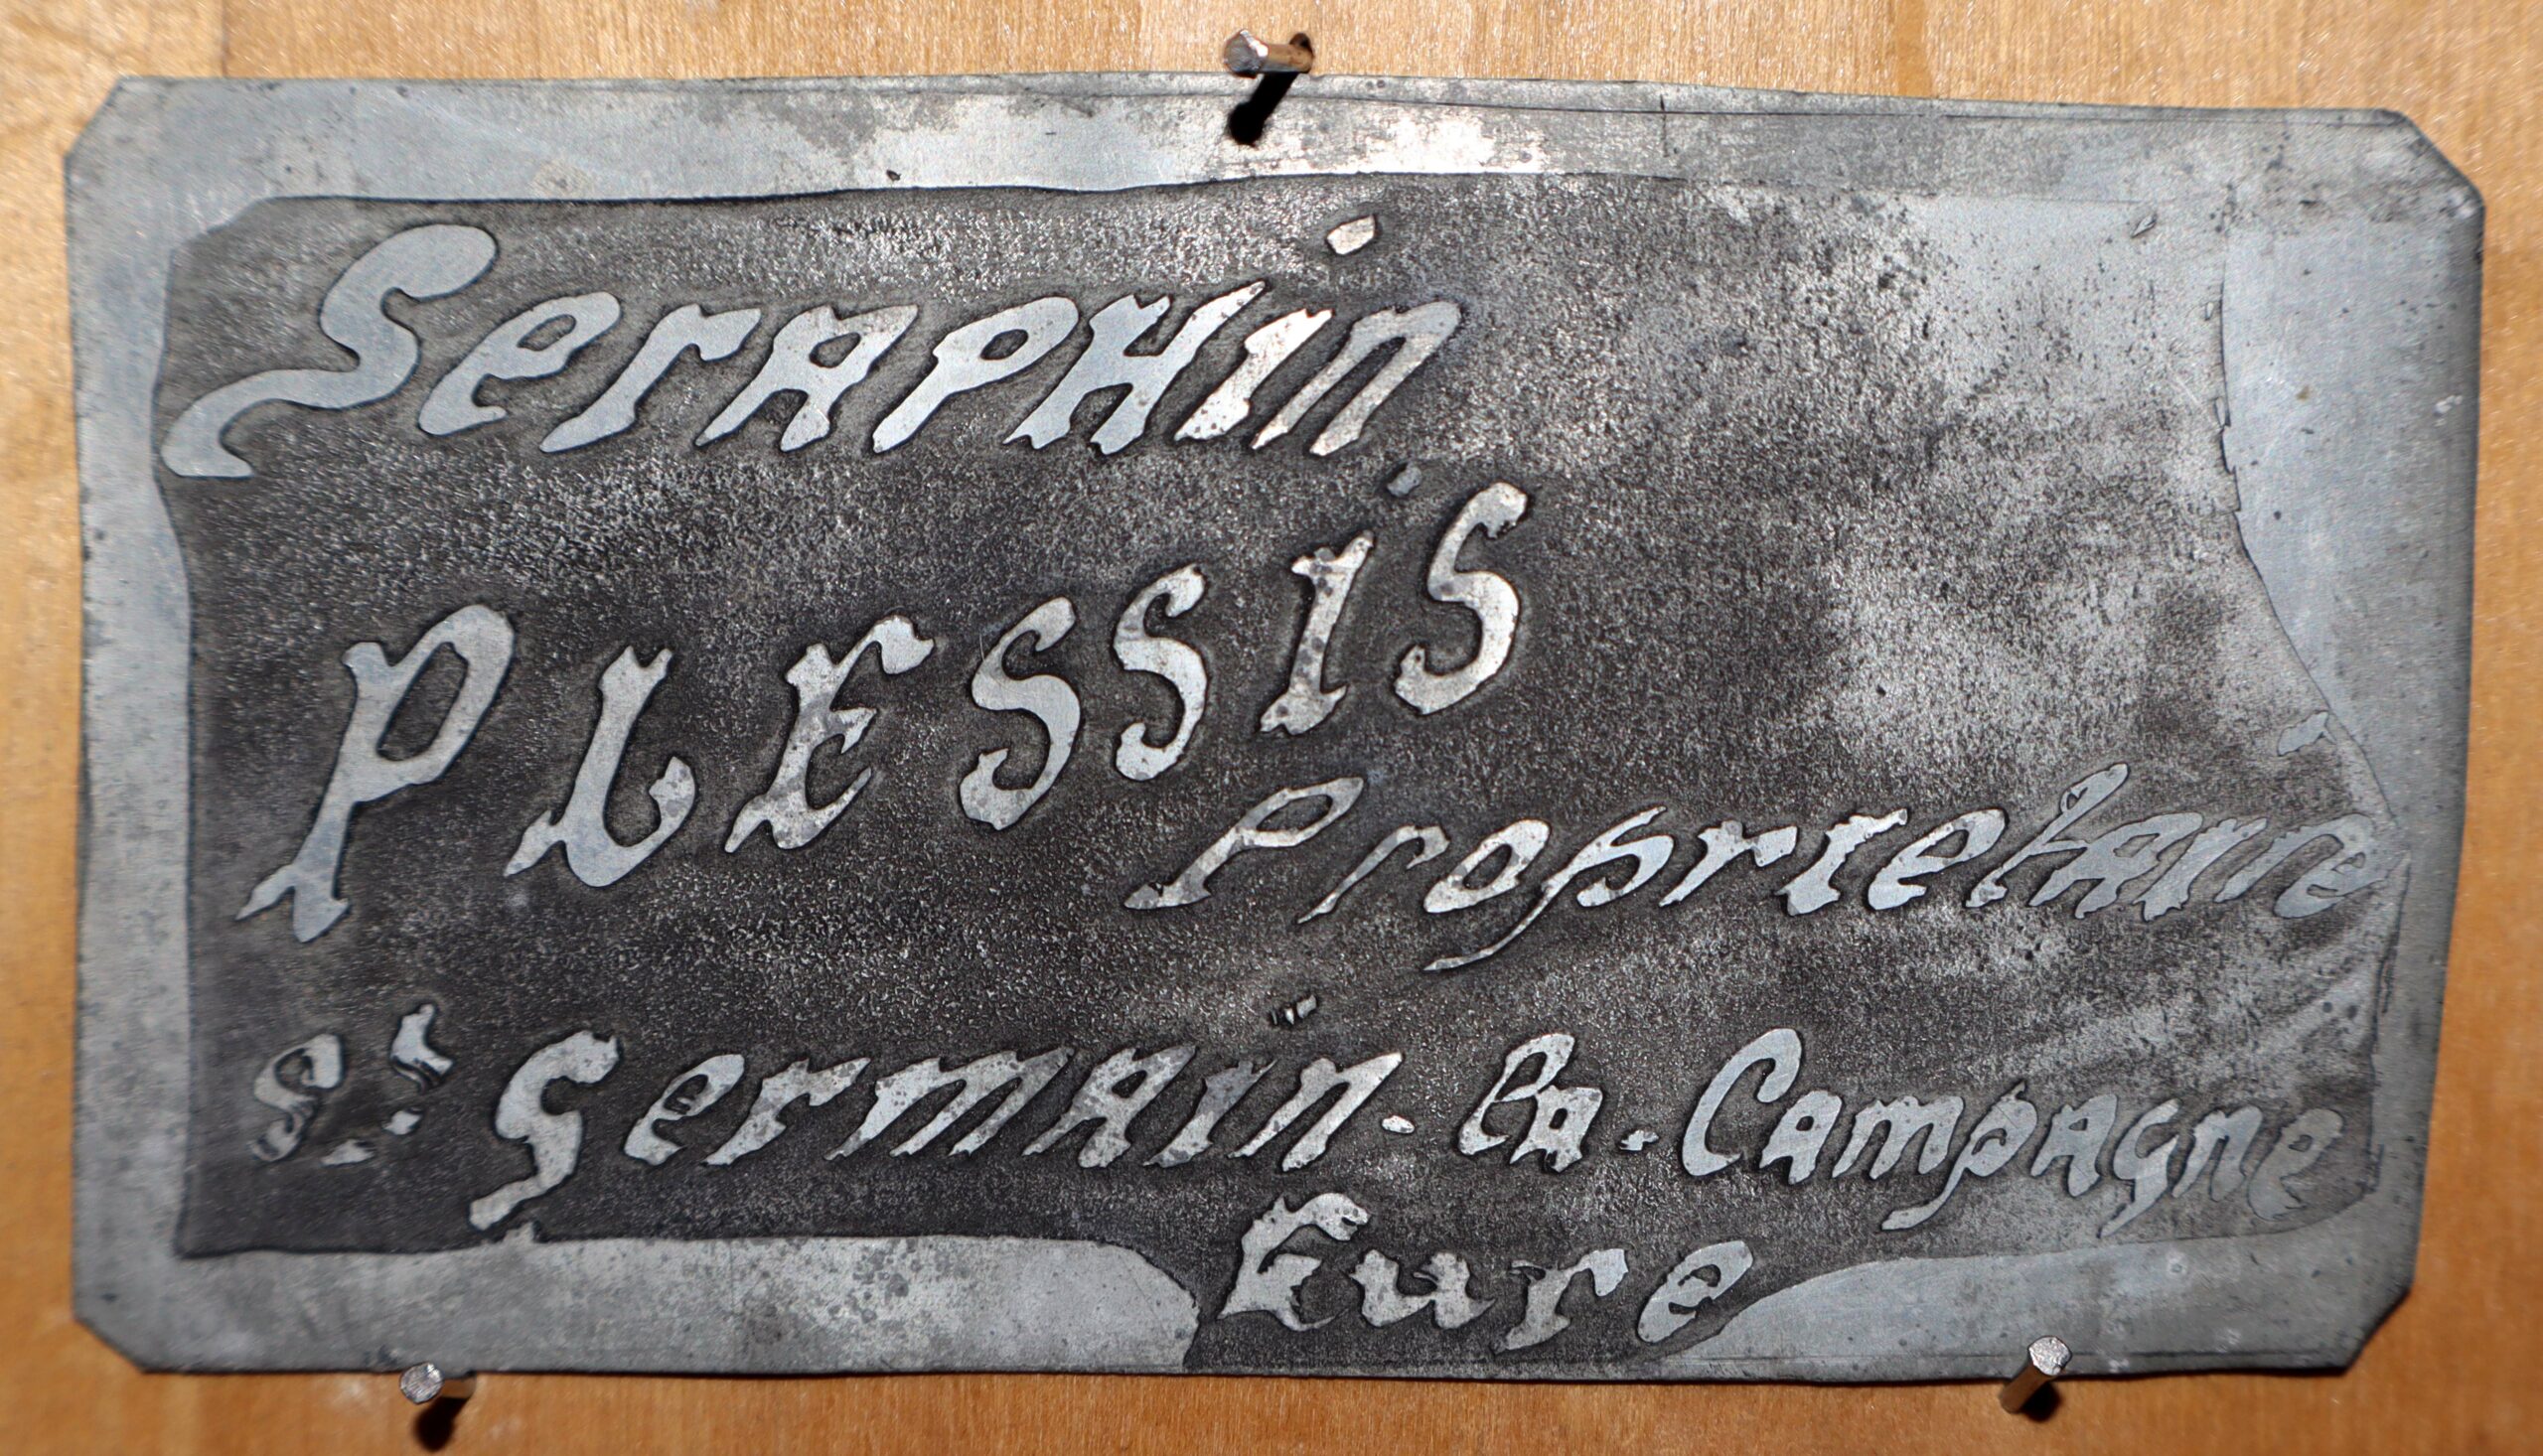 Seraphin
PLESSIS
Proprietaire
St Germain-la-Campagne
Eure